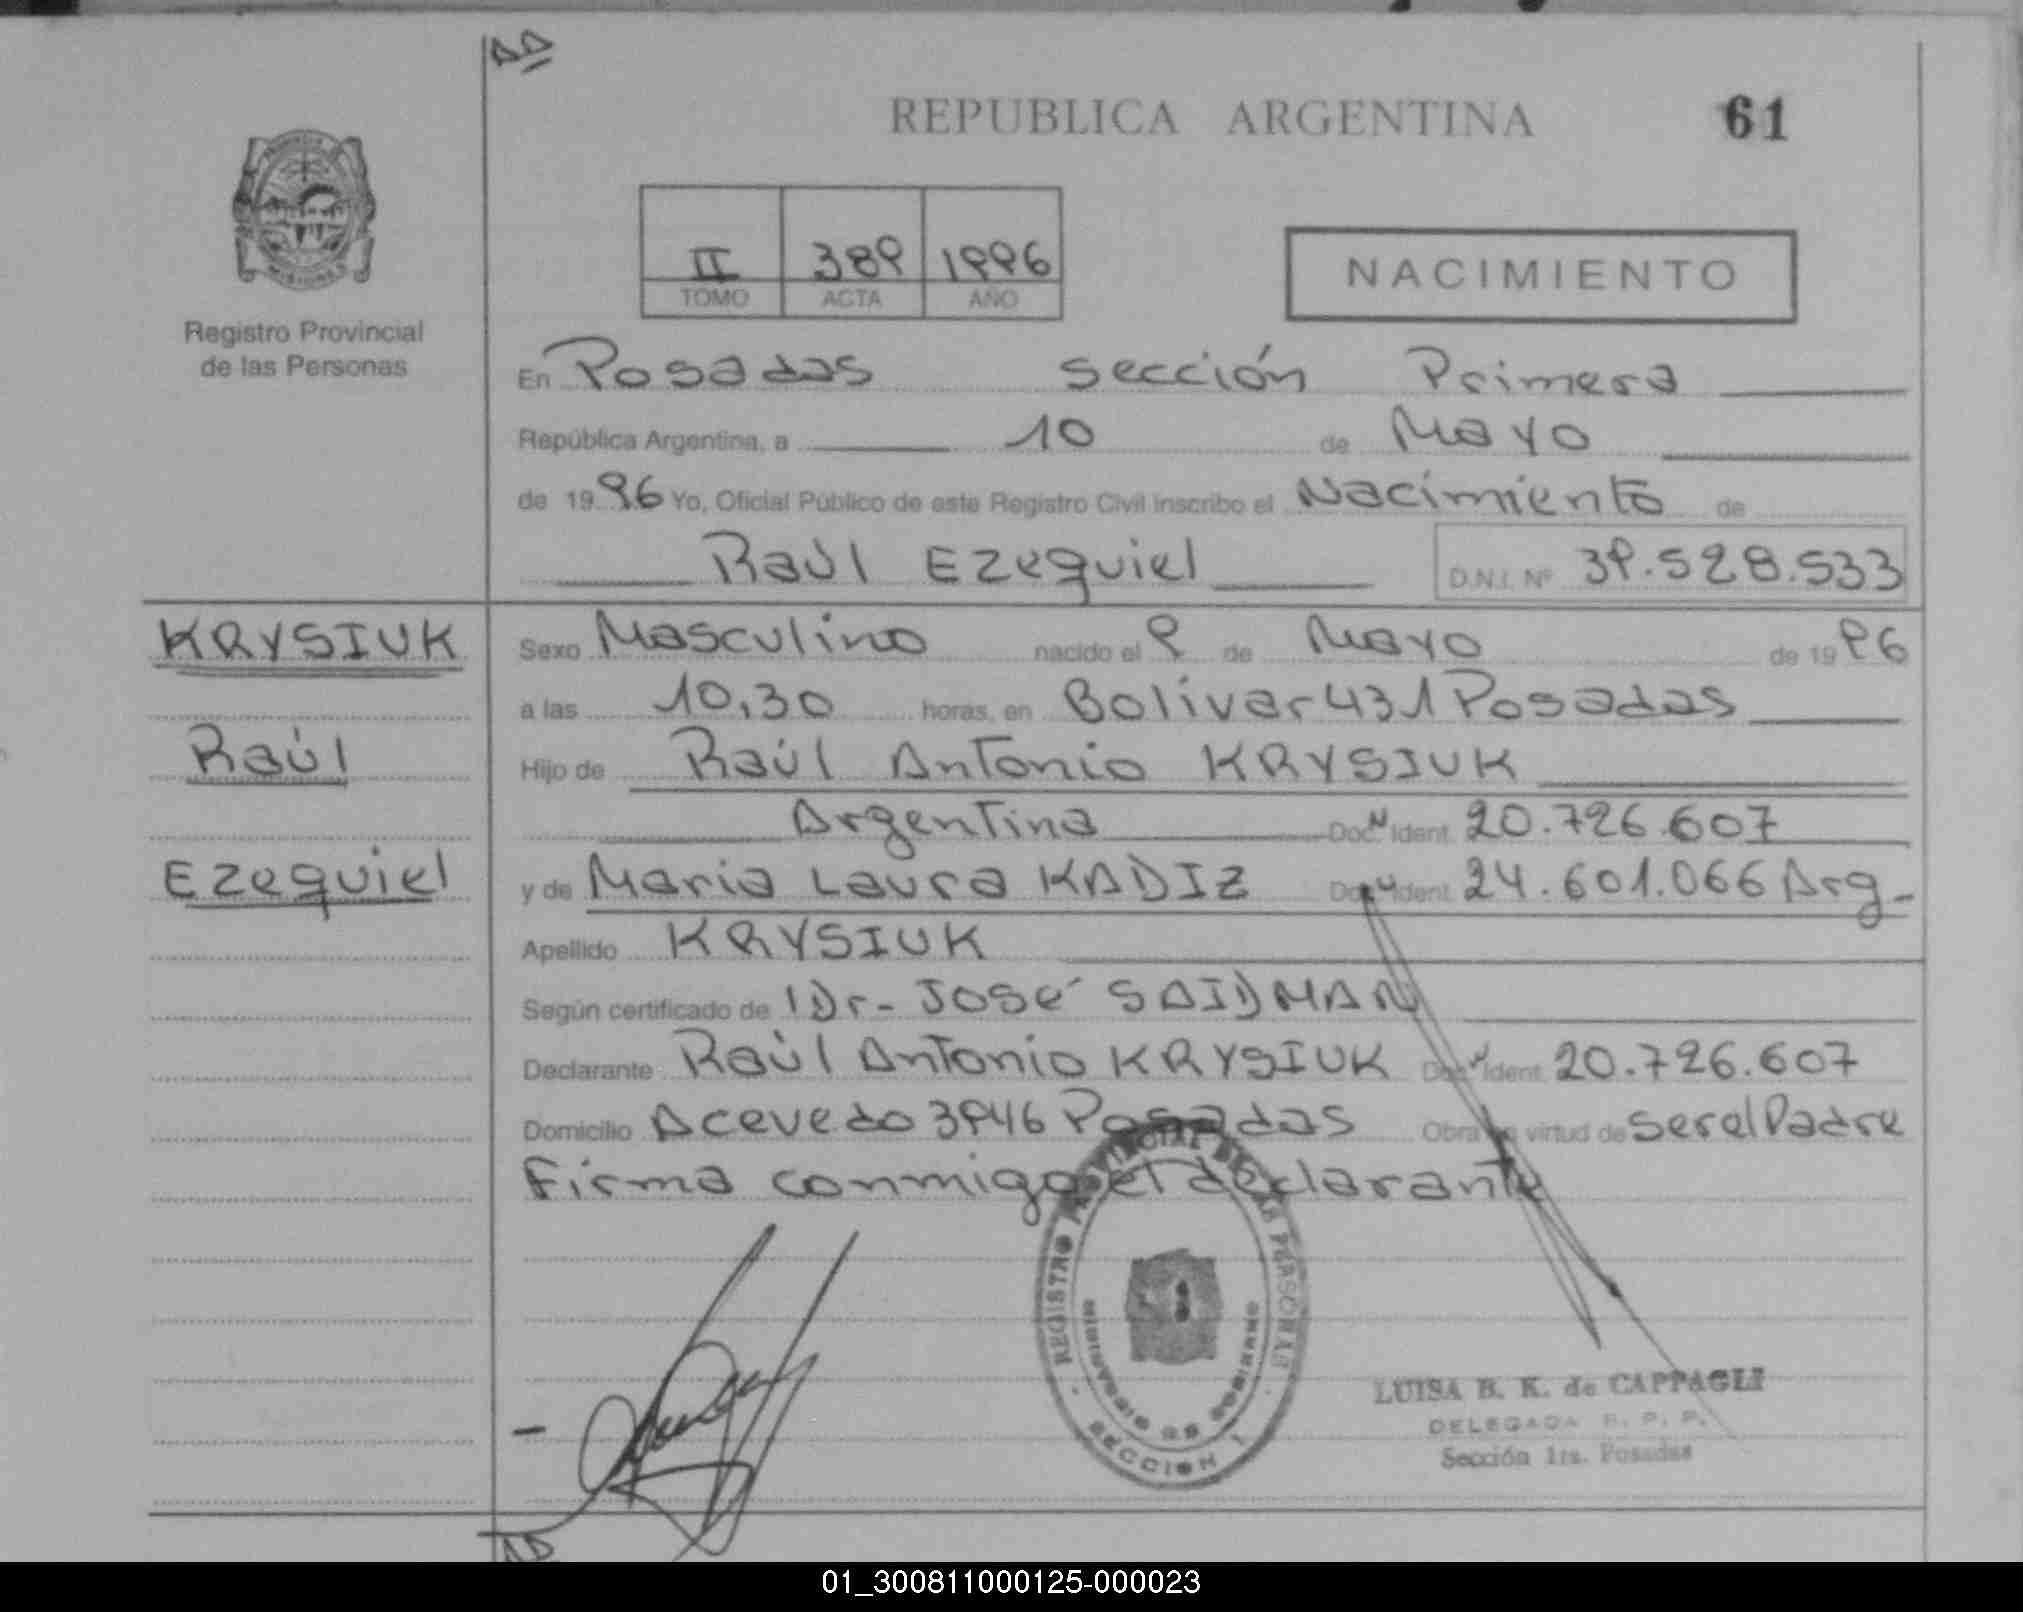 REPUBLICA ARGENTINA 61
II 389 1996
TOMO ACTA AÑO
NACIMIENTO
Registro Provincial
de las Personas
En Posadas sección Primera
República Argentina, a 10 de Mayo
de 1996 Yo, Oficial Público de este Registro Civil inscribo el Nacimiento de
Raúl Ezequiel D.N.I. Nº 39.528.533
KRYSIUK
Raúl
Ezequiel
Sexo Masculino nacido el 9 de Mayo de 1996
a las 10,30 horas, en Bolivar 431 Posadas
Hijo de Raúl Antonio KRYSIUK
Argentina Doc. Ident. 20.726.607
y de Maria Laura KADIZ Doc. Ident. 24.601.066 Arg-
Apellido KRYSIUK
Según certificado de Dr- José SAIDMAN
Declarante Raúl Antonio KRYSIUK Doc. Ident. 20.726.607
Domicilio Acevedo 3946 Posadas Obra en virtud de ser el Padre
Firma conmigo el declarante
REGISTRO PROVINCIAL DE LAS PERSONAS
MINISTERIO DE GOBIERNO
SECCION 1
LUISA B. K. de CAPPAGLI
DELEGADA R. P. P.
Sección 1ra. Posadas
01_300811000125-000023